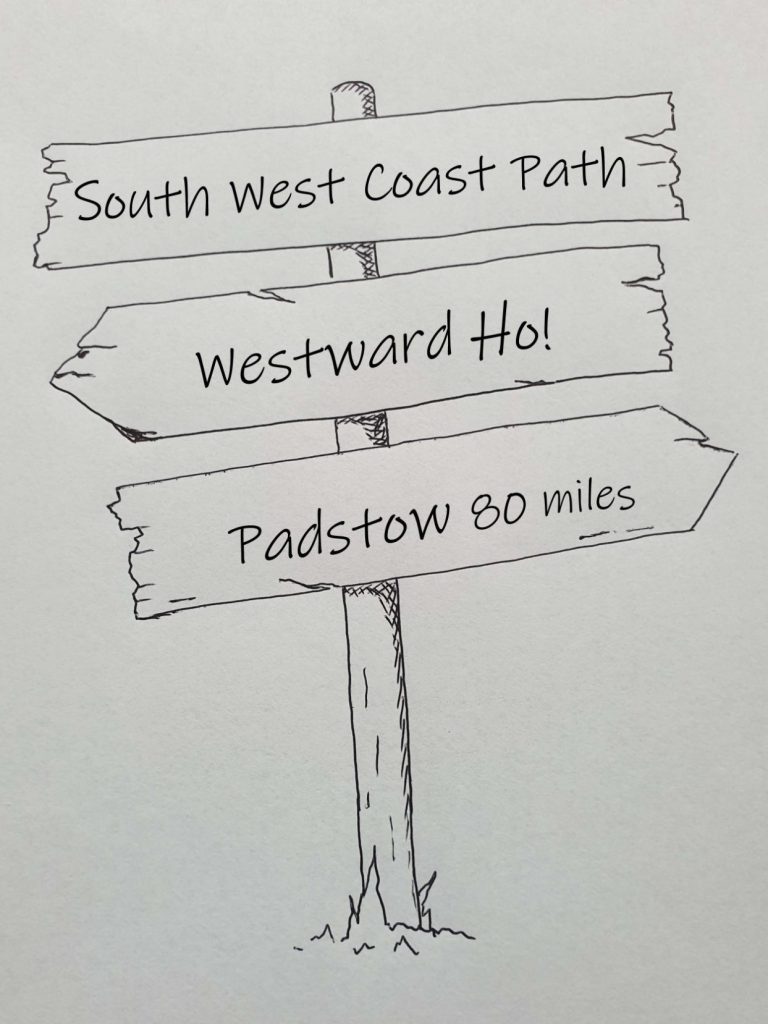 South West Coast Path
Westward Ho!
Padstow 80 miles